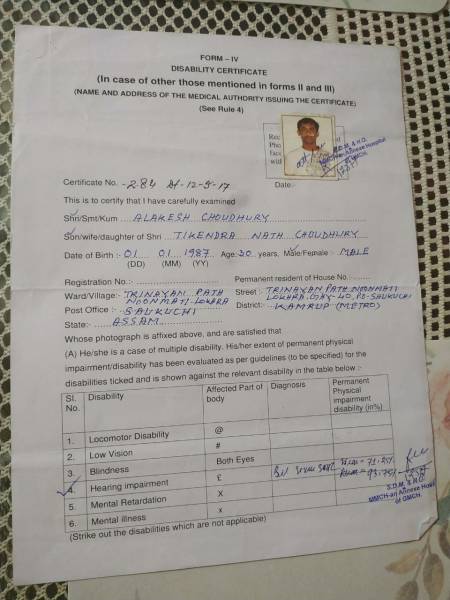 FORM – IV
DISABILITY CERTIFICATE
(In case of other those mentioned in forms II and III)
(NAME AND ADDRESS OF THE MEDICAL AUTHORITY ISSUING THE CERTIFICATE)
(See Rule 4)
Certificate No. -284 dt-12-5-17 Date:
This is to certify that I have carefully examined
Shri/Smt/Kum ALAKESH CHOUDHURY
Son/wife/daughter of Shri TIKENDRA NATH CHOUDHURY
Date of Birth :- 01 01 1987 Age: 30 years, Male/Female :- MALE
(DD) (MM) (YY)
Registration No.: Permanent resident of House No.
Ward/Village:- TRINAYAN PATH NOONMATI-LOKHRA Street :- TRINAYAN PATH NOONMATI LOKHRA, GHY-40, PO-SAUKUCHI
Post Office :- SAUKUCHI District:- KAMRUP (METRO)
State:- ASSAM
Whose photograph is affixed above, and are satisfied that
(A) He/she is a case of multiple disability. His/her extent of permanent physical
impairment/disability has been evaluated as per guidelines (to be specified) for the
disabilities ticked and is shown against the relevant disability in the table below :-
Sl. No. Disability Affected Part of body Diagnosis Permanent Physical impairment disability (in%)
1. Locomotor Disability @
2. Low Vision #
3. Blindness Both Eyes
4. Hearing impairment £
5. Mental Retardation X
6. Mental illness x
(Strike out the disabilities which are not applicable)
S.D.M. & H.O.
MMCH-an Annexe Hospital
of GMCH